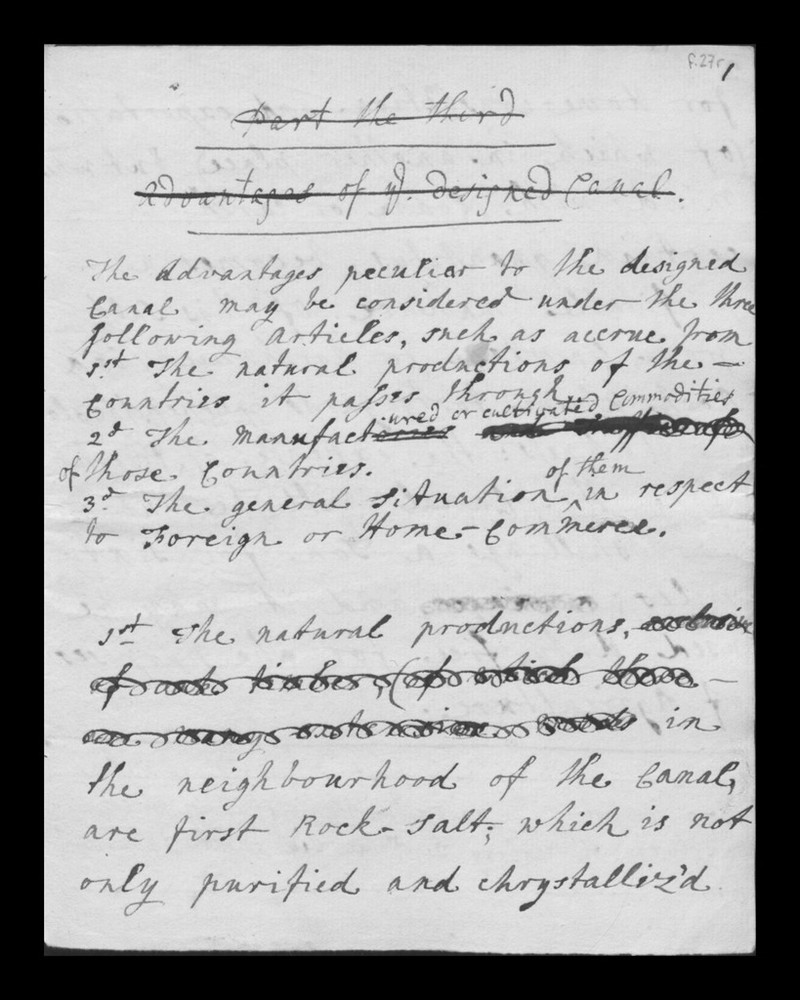 f.27r 1
Part the third
Advantages of ye. designed Canal.
The Advantages peculiar to the designed
Canal may be considered under the three
following Articles, such as accrue from
1st The natural productions of the
Countries it passes through
ured or cultivated Commodities
2d The Manufactories and
of those Countries.
of them
3d The general situation in respect
to Foreign or Home-Commerce.
1st The natural productions, exclusive
of oak timber, (of which there
are many extensive woods in
the neighbourhood of the Canal,
are first Rock-Salt; which is not
only purified and chrystalliz'd